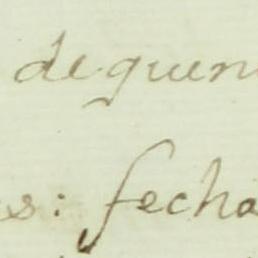 de quien
s: fecha